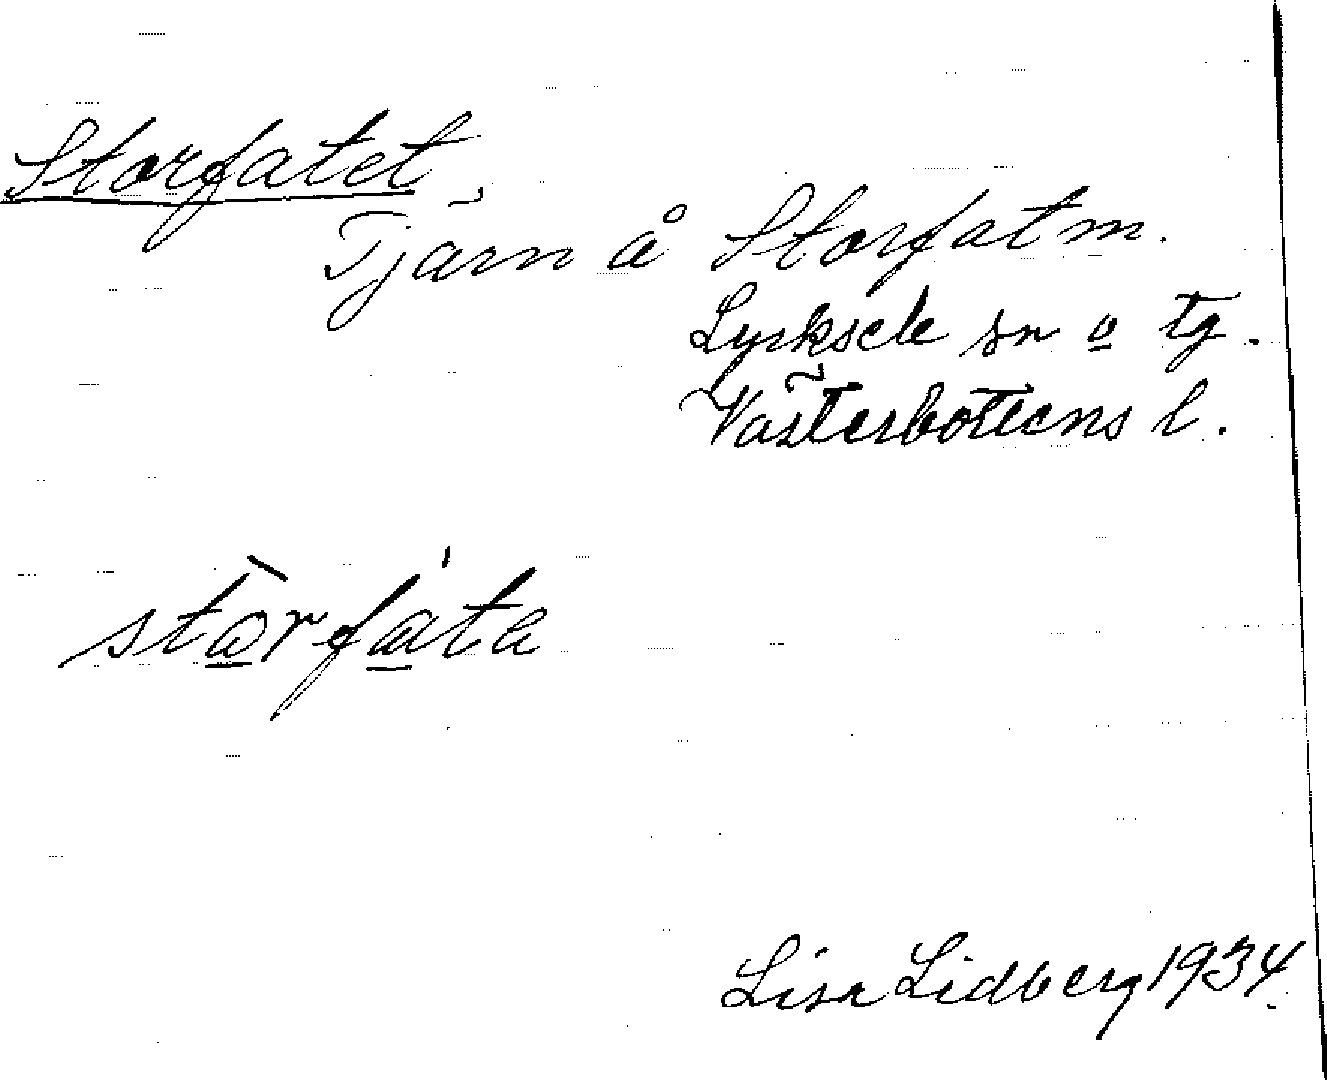 Storfatet,
Tjärn å Storfatm.
Lycksele sn o tg.
Västerbottens l.
stòrfáta
Lisa Lidberg 1934